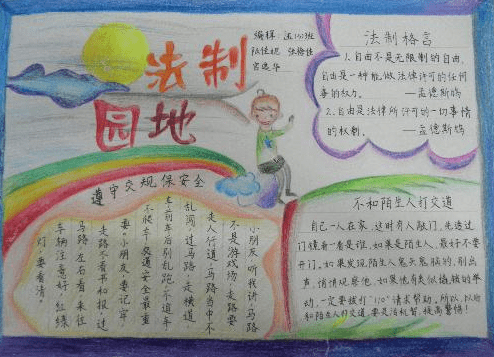 法制
园地
编辑：
张榕佳
法制格言
1.自由不是无限制的自由，
自由是一种能做法律许可的任何
事的权力。 —孟德斯鸠
2.自由是法律所许可的一切事情
的权利。 —孟德斯鸠
遵守交规保安全
小朋友听我讲，马路
不是游戏场，走路要
走人行道，马路当中不
乱闯，过马路，走横道
车前车后别乱跑，不追车
不候车，交通安全最重
要。小朋友，要记牢，
走路不看书和报，过
马路，左右看，来往
车辆注意好，红绿
灯，要看清。
不和陌生人打交道
自己一人在家，这时有人敲门，先透过
门镜看一看是谁，如果是陌生人，最好不要
开门。如果发现陌生人鬼头鬼脑的，别出
声，悄悄观察他，如果他有类似撬锁的举
动，一定要拨打"110"请求帮助。所以，以后
和陌生人打交道，要灵活机智，提高警惕！